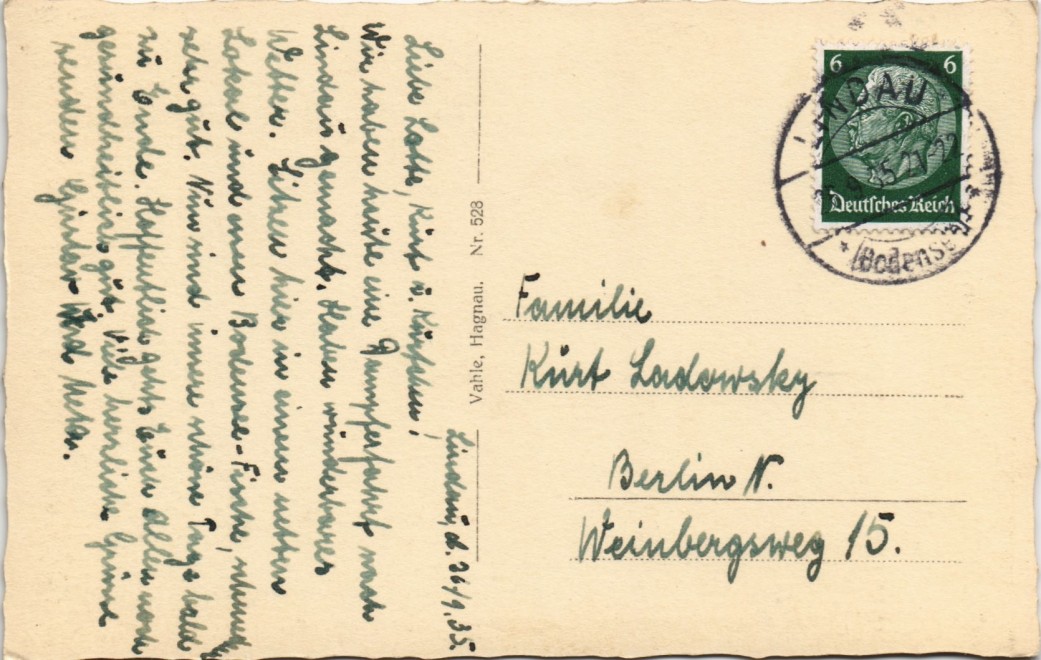 Lindau, d. 26/9.35.
Liebe Lotte, Kurt u.
Wir haben heute eine Dampferfahrt nach
Lindau gemacht. Haben wunderbares
Wetter. Sitzen hier in einem netten
Lokal und essen Bodensee-Fische,
sehr gut. Nun sind unsere schöne Tage bald
zu Ende. Hoffentlich gehts Euch allen noch
gesundheitlich gut. Viele herzliche Grüsse
senden
Vahle, Hagnau. Nr. 528
6 6
Deutsches Reich
LINDAU
9.35.21-22
(Bodensee)
Familie
Kurt Ladowsky
Berlin N.
Weinbergsweg 15.